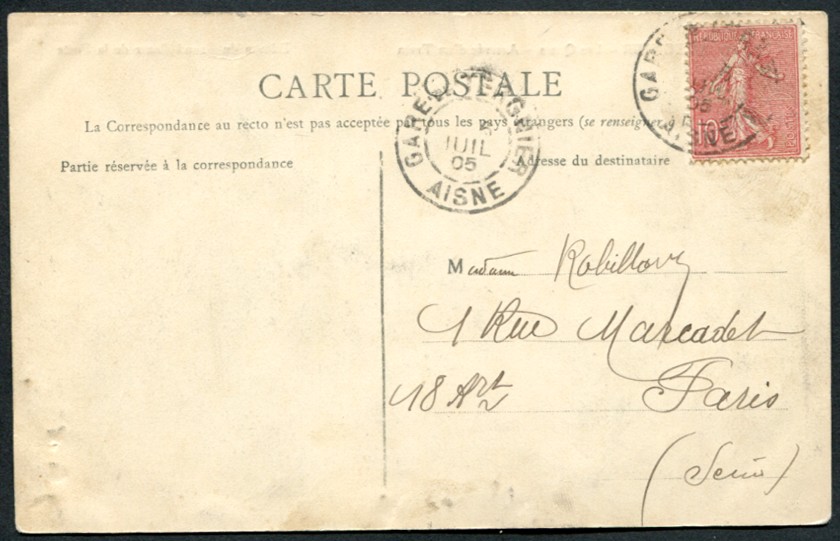 CARTE POSTALE
La Correspondance au recto n'est pas acceptée par tous les pays étrangers (se renseigner
Partie réservée à la correspondance
Adresse du destinataire
GARE DE TERGNIER
JUIL
05
AISNE
GARE
AISNE
REPUBLIQUE FRANÇAISE
10
Madame
1 Rue Marcadet
18 Art
Paris
(Seine)